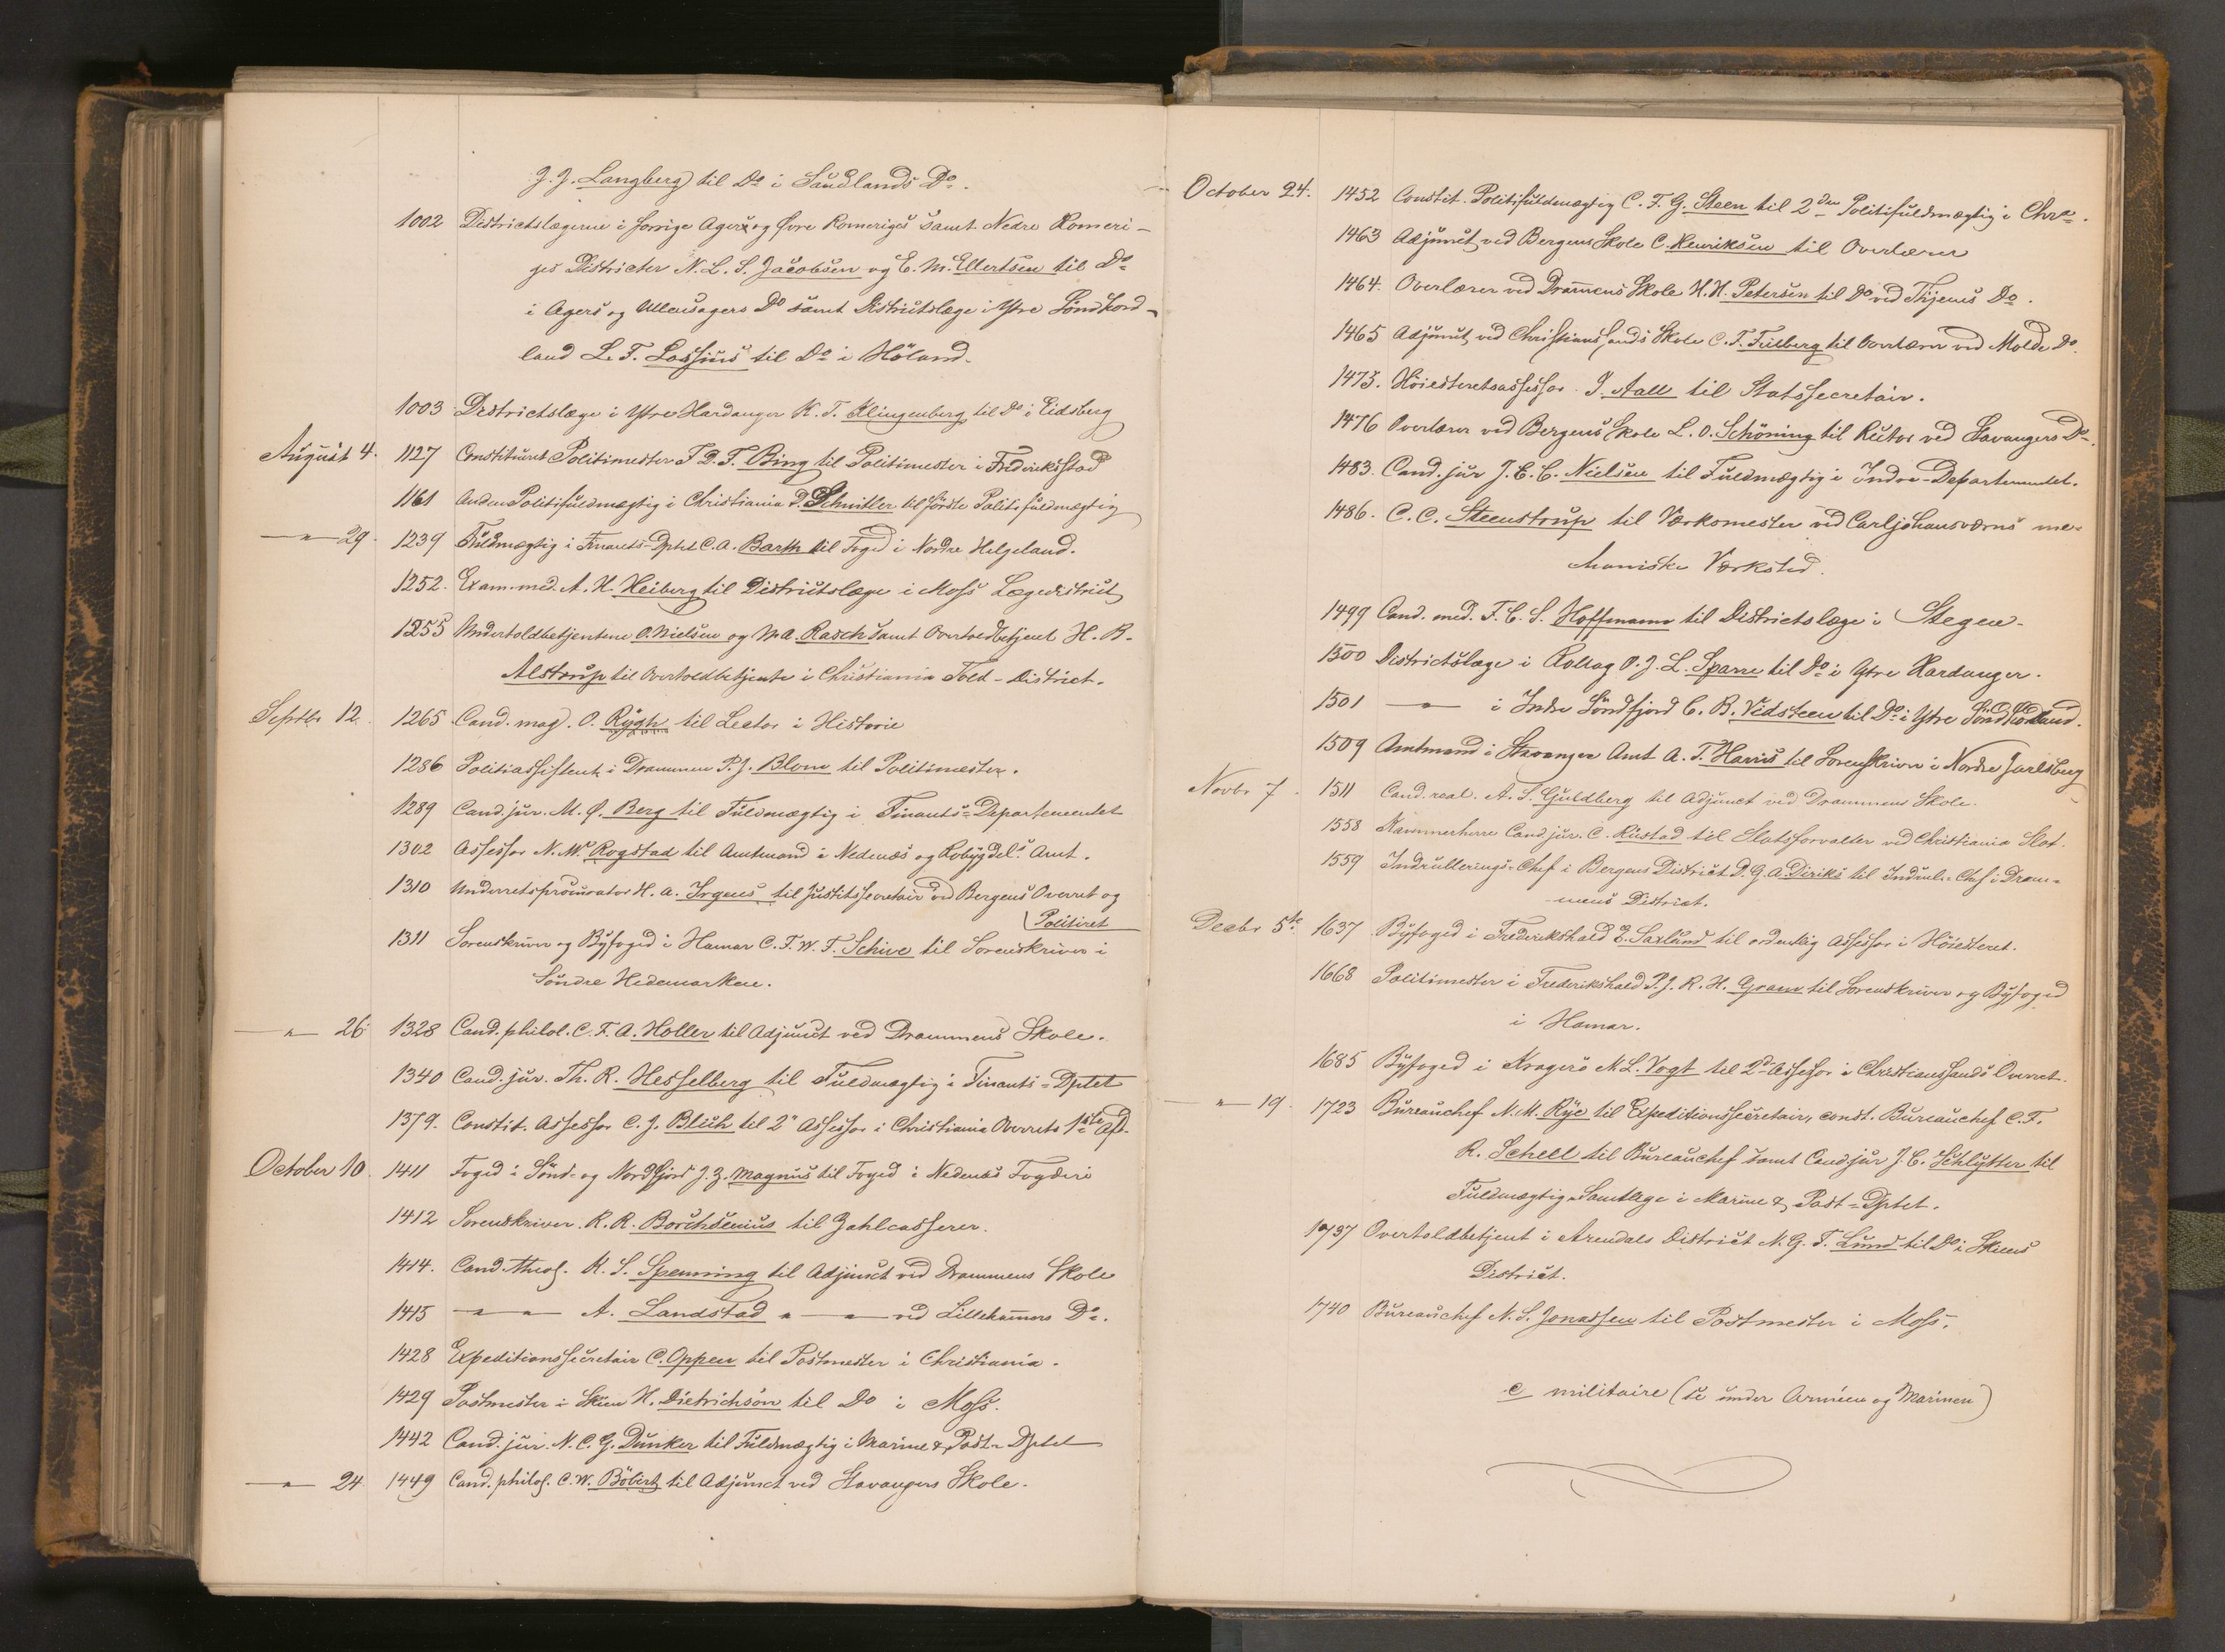 J. J. Langberg til Do i Saudlands Do.
1002 Districtslægerne i forrige Agers og Øvre Romeriges samt Nedre Romeri-
ges Districter N. L. S. Jacobsen og E. M. Ellertsen til Do
i Agers og Ullensagers Do samt Districtslæge i Ytre Söndhord-
land L. F. Lossius til Do i Höland.
1003 Districtslæge i Ytre Hardanger K. T. Klingenberg til Do i Eidsberg
August 4. 1127 Constitueret Politimester F. D. F. Bing til Politimester i Frederiksstad
1161 Anden Politifuldmægtig i Christiania D. Schnitler til förste Politifuldmægtig
—"— 29. 1239 Fuldmægtig i Finants-Dptet C. A. Barth til Foged i Nordre Helgeland.
1252. Exam. med. A. H. Heiberg til Districtslæge i Moss Lægedistrict
1255 Undertoldbetjentene O. Nielsen og M. A. Rasch samt Overtoldbetjent H. B.
Alstrup til Overtoldbetjente i Christiania Told-District.
Septbr 12. 1265 Cand. mag. O. Rygh til Lector i Historie
1286 Politiassistent i Drammen P. J. Blom til Politimester.
1289 Cand. jur. M. Ø. Berg til Fuldmægtig i Finants-Departementet
1302 Assessor N. W. Rogstad til Amtmand i Nedenæs og Robygdel. Amt.
1310 Underretsprocurator H. A. Irgens til Justitssecretair ved Bergens Overret og
Politiret
1311 Sorenskriver og Byfoged i Hamar C. F. W. F. Schive til Sorenskriver i
Söndre Hedemarken.
—"— 26 1328 Cand. philol. C. F. A. Holler til Adjunct ved Drammens Skole.
1340 Cand. jur. Th. R. Hesselberg til Fuldmægtig i Finants-Dptet
1379. Constit. Assessor C. J. Blich til 2" Assessor i Christiania Overrets 1ste Afd.
October 10. 1411 Foged i Sönd- og Nordfjord J. Z. Magnus til Foged i Nedenæs Fogderi
1412 Sorenskriver R. R. Borchsenius til Zahlcasserer.
1414. Cand. theol. K. S. Spenning til Adjunct ved Drammens Skole
1415 —"—"— A. Landstad "—"— ved Lillehamers Do.
1428 Expeditionssecretair C. Oppen til Postmester i Christiania.
1429 Postmester i Skien H. Dietrichson til Do i Moss.
1442 Cand. jur. N. C. G. Dunker til Fuldmægtig i Marine & Post-Dptet
—"— 24. 1449 Cand. philol. C. W. Böbert til Adjunct ved Stavangers Skole.
October 24. 1452 Constit. Politifuldmægtig C. F. G. Steen til 2den Politifuldmægtig i Chra.
1463 Adjunct ved Bergens Skole C. Henriksen til Overlærer
1464. Overlærer ved Dramens Skole H. H. Petersen til Do ved Thjems Do.
1465 Adjunct ved Christianssands Skole C. T. Feilberg til Overlærer ved Molde Do.
1475. Höiesteretsassessor J. Aall til Statssecretair.
1476 Overlærer ved Bergens Skole L. O. Schöning til Rector ved Stavangers Do.
1483. Cand. jur J. E. C. Nielsen til Fuldmægtig i Indre-Departementet.
1486. C. C. Steenstrup til Værksmester ved Carljohansværns me-
chaniske Værksted.
1499 Cand. med. F. C. S. Hoffmann til Districtslæge i Stegen.
1500 Districtslæge i Rollag O. J. L. Sparre til Do i Ytre Hardanger.
1501 —"— i Indre Söndfjord C. B. Vedsteen til Do i Ytre Söndhordland.
1509 Amtmand i Stavanger Amt A. T. Harris til Sorenskriver i Nordre Jarlsberg
Novbr 7. 1511 Cand. real. A. S. Guldberg til Adjunct ved Drammens Skole.
1558 Kammerherre Cand jur. C. Rustad til Slotsforvalter ved Christiania Slot.
1559 Indrullerings-Chef i Bergens District D. G. A. Diriks til Indrul.-Chef i Dram-
mens District.
Decbr 5te 1637 Byfoged i Frederikshald E. Saxlund til ordentlig Assessor i Höiesteret.
1668 Politimester i Frederikshald P. J. R. H. Gram til Sorenskriver og Byfoged
i Hamar.
1685 Byfoged i Kragerö N. L. Vogt til 2d Assessor i Christianssands Overret.
—"— 19. 1723 Bureauchef N. M. Rye til Expeditionssecretair, const. Bureauchef C. F.
R. Scheel til Bureauchef samt Cand jur J. C. Schlytter til
Fuldmægtig samtlige i Marine & Post-Dptet.
1737 Overtoldbetjent i Arendals District N. G. F. Lund til Do i Skiens
District.
1740 Bureauchef N. S. Jonassen til Postmester i Moss.
c militaire (se under Armeen og Marinen)